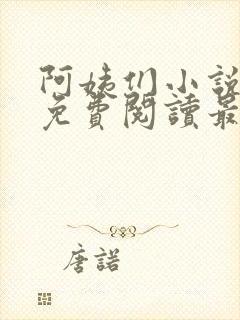 阿姨们小說
免費閱讀最
唐諾